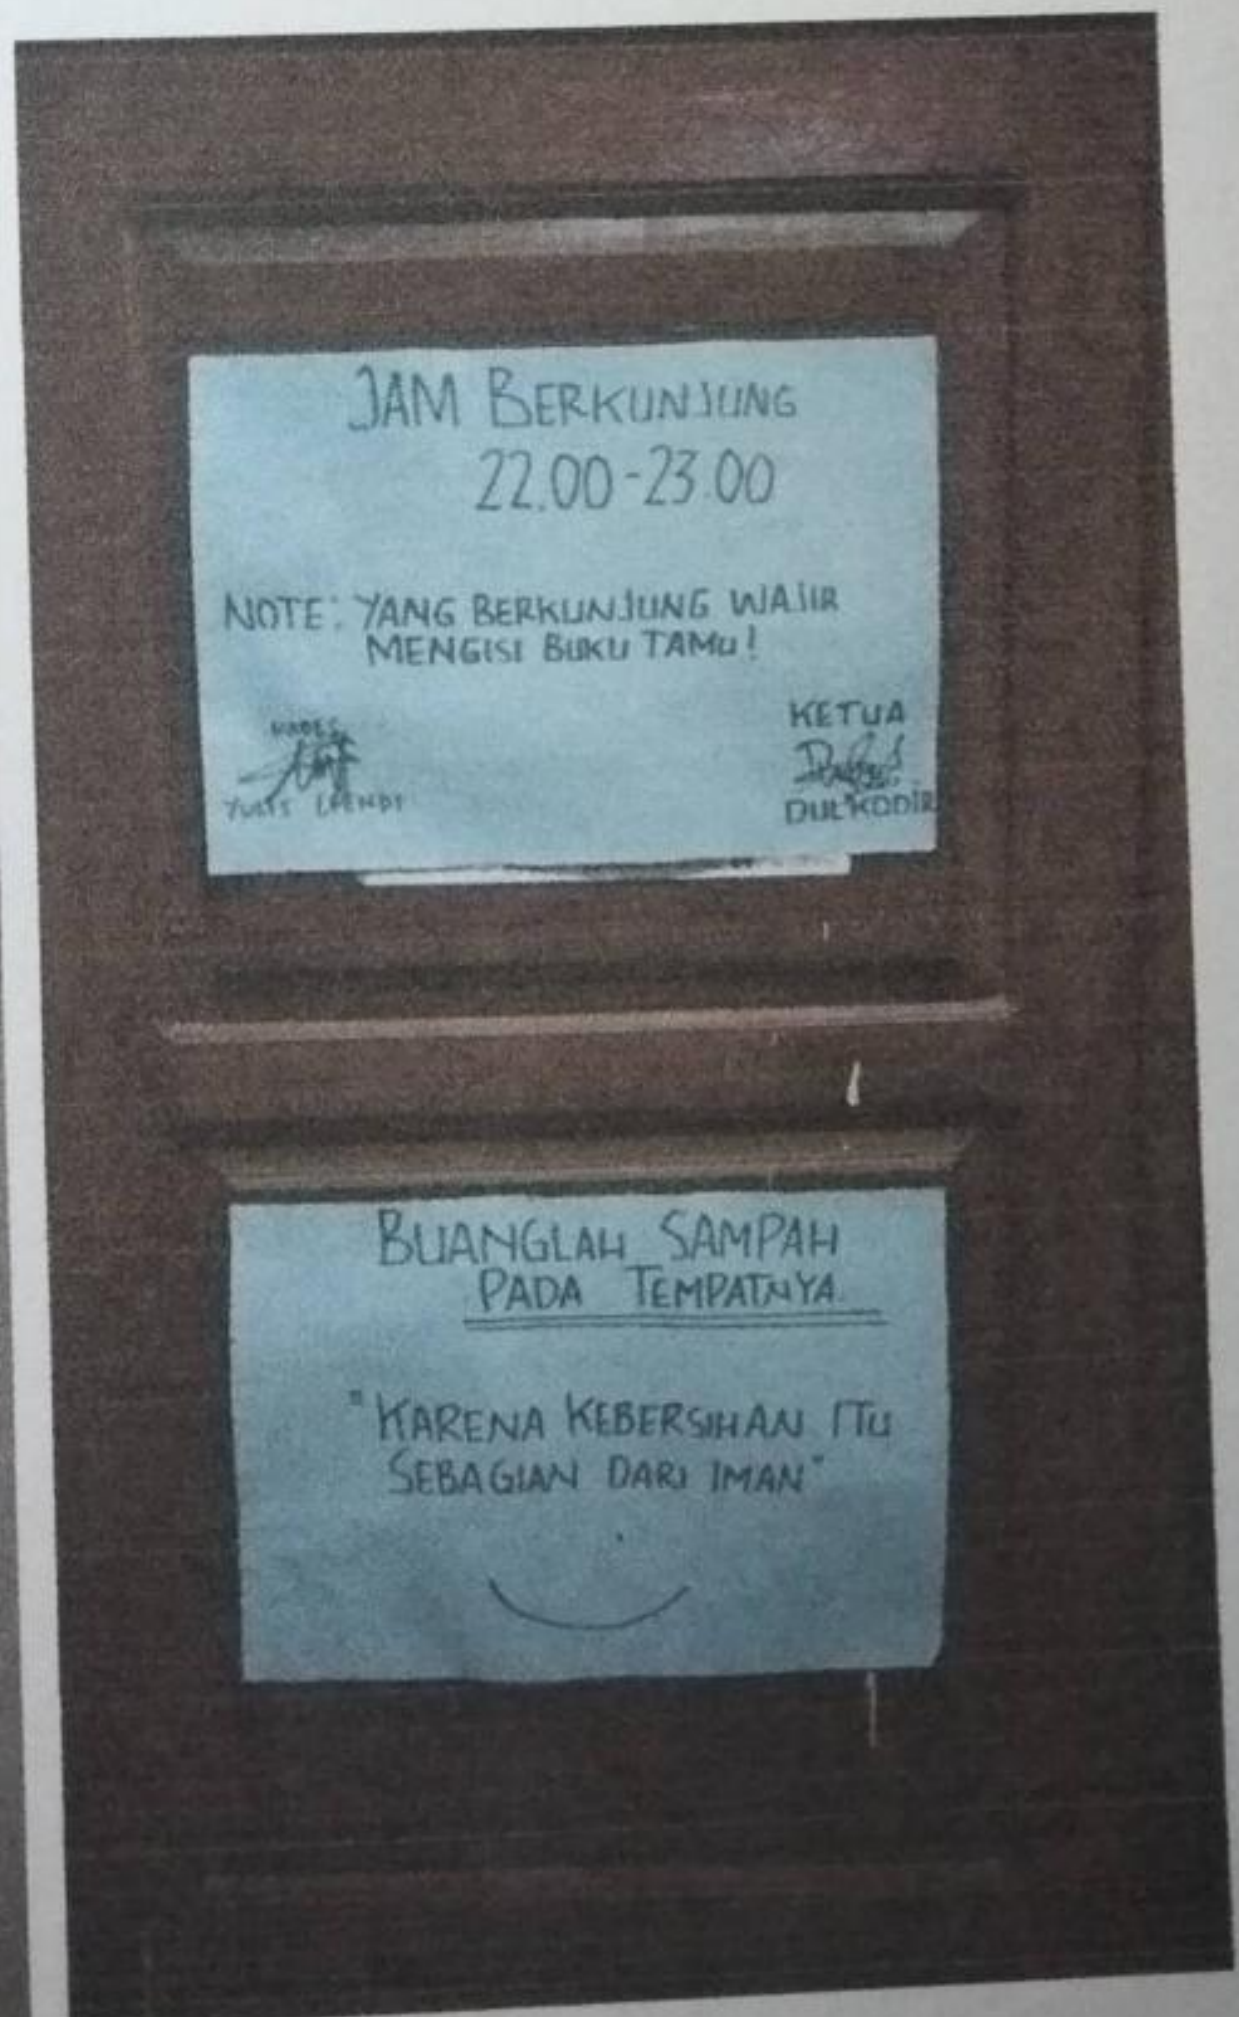 JAM BERKUNJUNG
22.00-23.00
NOTE: YANG BERKUNJUNG WAJIB
MENGISI BUKU TAMU!
KADES
YULIS
KETUA
DUL KODIR
BUANGLAH SAMPAH
PADA TEMPATNYA.
"KARENA KEBERSIHAN ITU
SEBAGIAN DARI IMAN"